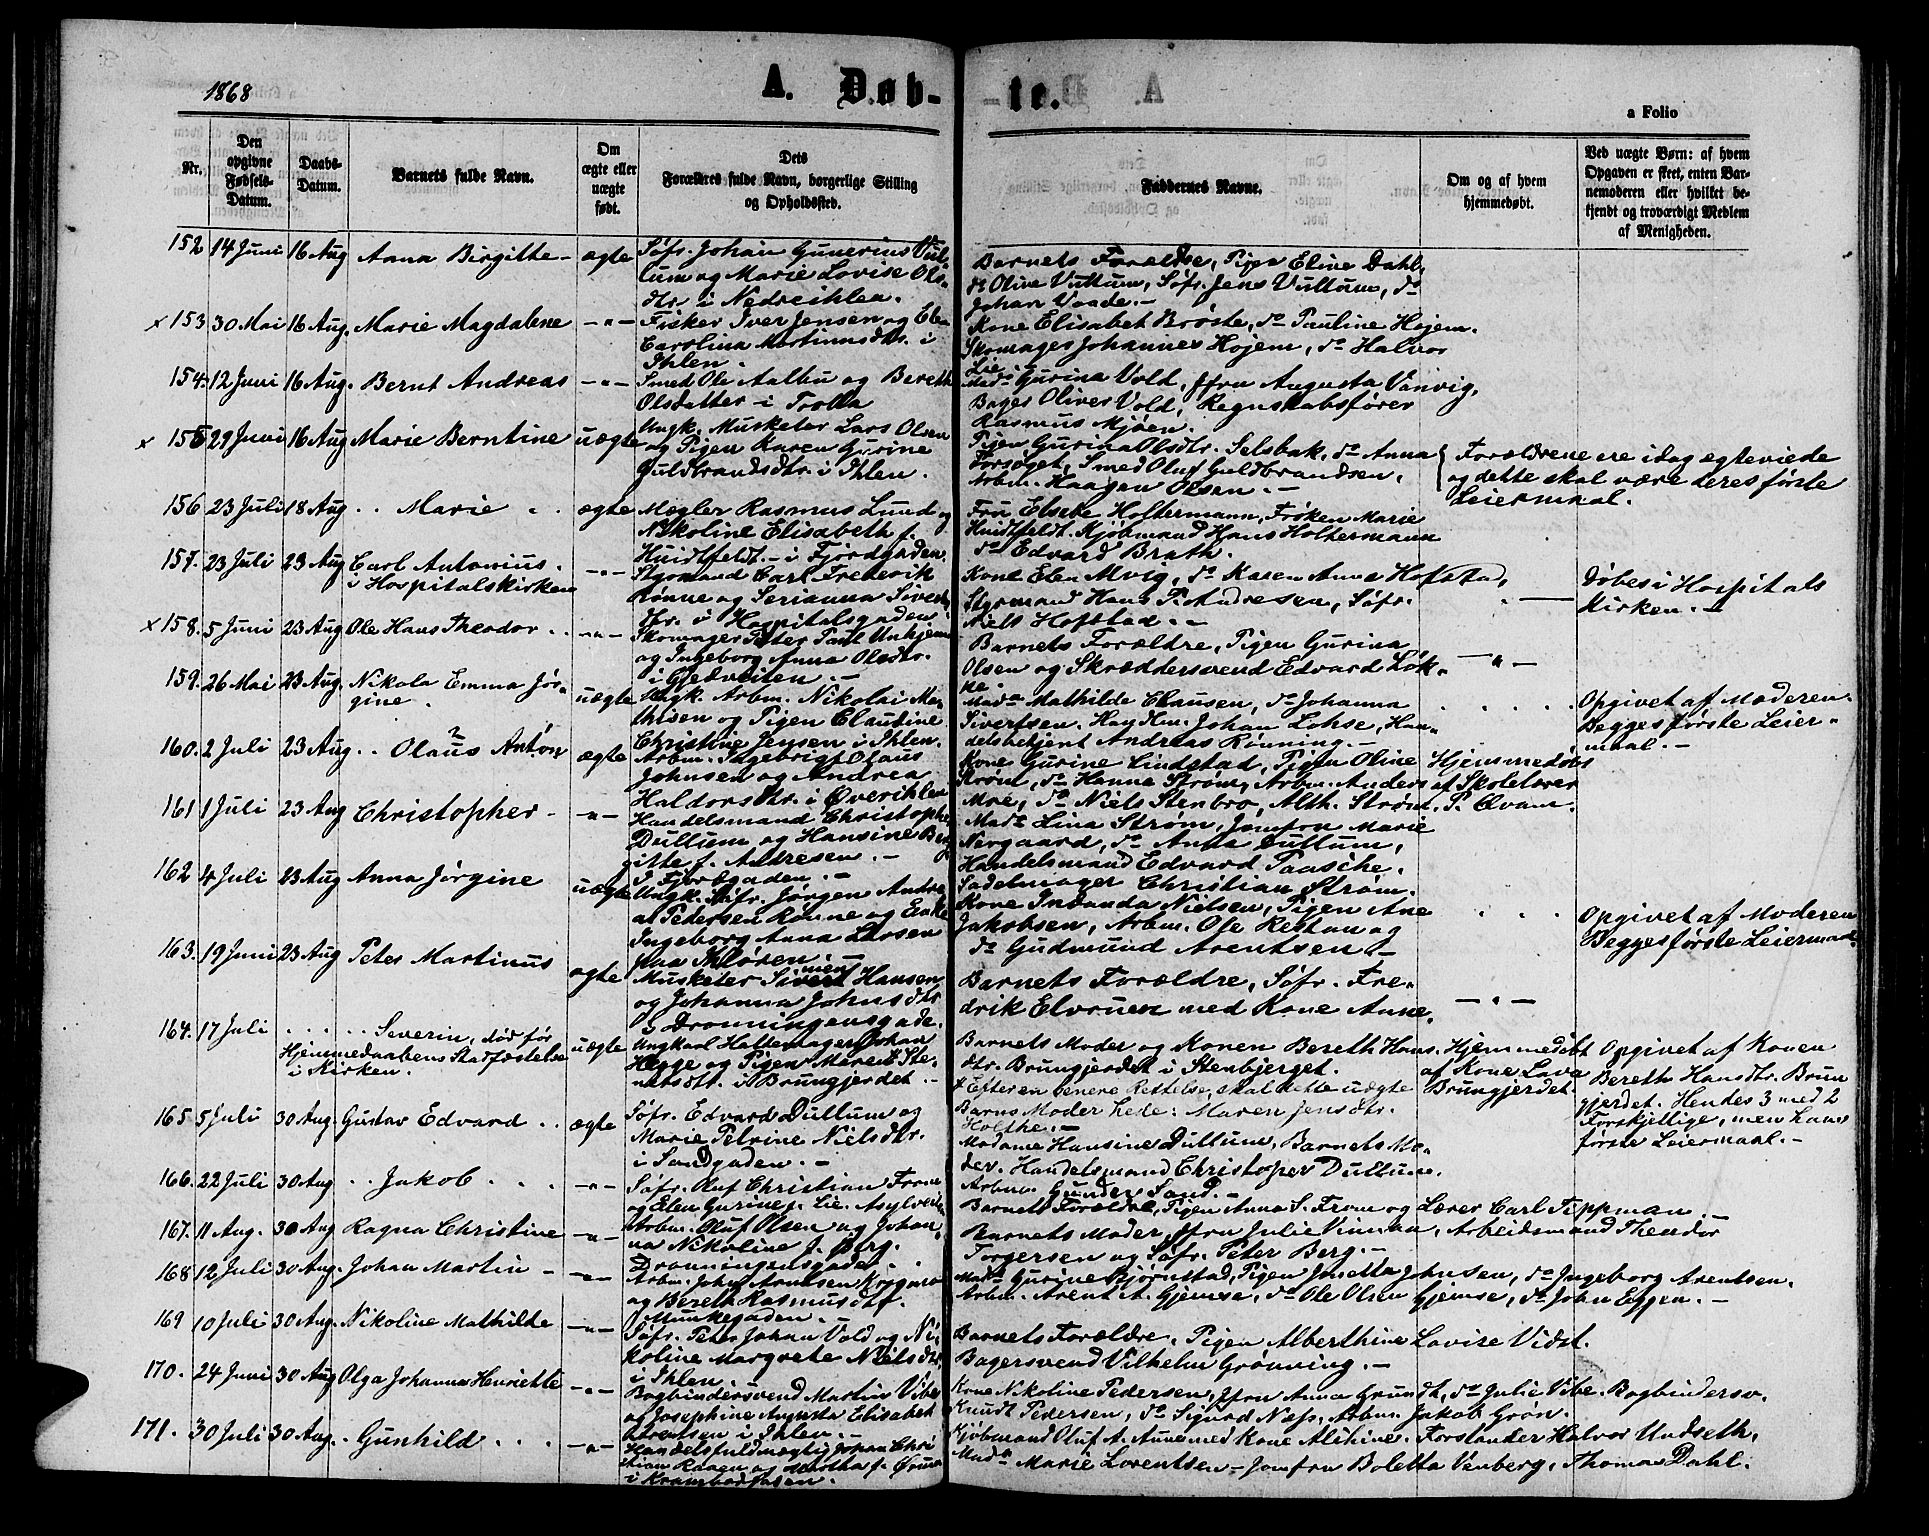 1868
A. Døb-
te.
a Folio
Nr.
Den opgivne Fødsels-Datum.
Daabs-Datum.
Barnets fulde Navn.
Om ægte eller uægte født.
Dets Forældres fulde Navn, borgerlige Stilling og Opholdssted.
Faddernes Navne.
Om og af hvem hjemmedøbt.
Ved uægte Børn: af hvem Opgaven er skeet, enten Barnemoderen eller hvilket bekjendt og troværdigt Medlem af Menigheden.
152 14 Juni 16 Aug Anna Birgitte - ægte
Søfr. Johan Gunerius Vul-
lum og Marie Lovise Ols-
dtr. i Nedreihlen.
Barnets Forældre, Pigen Eline Dahl,
do Oline Vullum, Søfr. Jens Vullum, do
Johan Vaade. -
x 153 30 Mai 16 Aug. Marie Magdalene -"-
Fisker Iver Jensen og Ele-
Carolina Martinusdtr. i
Ihlen.
Kone Elisabet Brøste, do Pauline Højem.
Skomager Johannes Højem, do Halvor
Lie
154. 12 Juni 16 Aug. Bernt Andreas -"-
Smed Ole Aalbu og Bereth
Olsdatter i Trolla
Mad. Gurina Vold, Jfru Augusta Vanvig,
Bager Oliver Vold, Regnskabsfører
Rasmus Mjøen.
x 155 29 Juni 16 Aug Marie Berntine uægte
Ungk. Musketer Lars Olsen
og Pigen Karen Gurine
Guldbrandsdtr. i Ihlen.
Pigen Gurina Olsdtr. Selsbak, do Anna
Forsøget, Smed Oluf Guldbrandsen,
Arbm. Haagen Olsen. -
Forældrene ere idag egteviede
og dette skal være deres første
Leiermaal.
156 23 Juli 18 Aug .. Marie .. ægte
Mægler Rasmus Lund og
Nikoline Elisabeth f.
Huidtfeldt. - i Fjordgaden.
Fru Elsebe Holtermann, Frøken Marie
Huidtfeldt. Kjøbmand Hans Holtermann
do Edvard Brath.
157. 23 Juli 23 Aug Carl Antonius.
i Hospitalskirken -"-
Styrmand Carl Frederik
Rønne og Serianna Siverts-
dtr. i Hospitalsgaden
Kone Elen Mvig, do Karen Anna Hofstad,
Styrmand Hans P. Andresen, Søfr.
Niels Hofstad. -
Døbes i Hospitals
Kirken. -
x 158. 5 Juni 23 Aug Ole Hans Theodor .. -"-
Skomager Peter Paul Unkjem
og Ingeborg Anna Olsdtr.
i Gjedveiten. -
Barnets Forældre, Pigen Gurina
Olsen og Skræddersvend Edvard Løk-
ke.
-"-
159. 26 Mai 23 Aug. Nikola Emma Jør-
gine. uægte
Ungk. Arbm. Nikolai Ma-
thisen og Pigen Claudine
Christine Jensen i Ihlen.
Mada Mathilde Clausen, do Johanna
Sivertsen. Handlm. Johan Lohse, Han-
delsbetjent Andreas Rønning. -
Opgivet af Moderen.
Begges første Leier-
maal. -
160. 2 Juli 23 Aug .. Olaus Anton ægte
Arbm. Ingebrigt Olaus
Johnsen og Andrea
Haldorsdtr. i Øverihlen
Kone Gurine Lindstad, Pigen Oline
Strøm, do Hanna Strøm, Arbm. Anders
Moe, do Niels Stenbro, Alth. Strøm.
Hjemmedøbt
af Skolelærer
P. Øvam.
161 1 Juli 23 Aug Christopher - -"-
Handelsmand Christopher
Dullum og Hansine Bir-
gitte f. Andresen. -
i Fjordgaden. -
Mada Lina Strøm, Jomfru Marie
Nergaard, do Anna Dullum,
Handelsmand Edvard Paasche.
Sadelmager Christian Strøm.
162 4 Juli 23 Aug Anna Jørgine uægte
Ungk. Søfr. Jørgen Andre-
as Pedersen Rønne og Enke
Ingeborg Anna Larsen
paa Ihløren. -
Kone Indianda Nielsen, Pigen Ane
Jakobsen, Arbm. Ole Restan og
do Gudmund Arentsen. -
Opgivet af Moderen
Begges første Leiermaal.
163. 19 Juni 23 Aug Peter Martinus ægte
Musketer Simen Hansen
og Johanna Johnsdtr
i Dronningensgade.
Barnets Forældre, Søfr. Fre-
drik Elvruen med Kone Anne.
-"-
164. 17 Juli .... Severin, død før
Hjemmedaabens Stadfæstelse
i Kirken. uægte
Ungkarl Hattemager Johan
Hegge og Pigen Maren Ste-
netsdtr. i Brungjerdet. -
Barnets Moder og Konen Bereth Hans-
dtr. Brungjerdet i Stenbjerget.
x Efter en senere Rettelse, skal dette uægte
Barns Moder hede: Maren Jensdtr.
Holthe. -
Hjemmedøbt
af Kone Lava
Brungjerdet.
Opgivet af Konen
Bereth Hansdtr. Brun
gjerdet. Hendes 3 med 2
Forskjellige, men hans
første Leiermaal. -
165. 5 Juli 30 Aug. Gustav Edvard .. ægte
Søfr. Edvard Dullum og
Marie Petrine Nielsdtr.
i Sandgaden. -
Madame Hansine Dullum, Barnets Mo-
der. Handelsmand Christopher Dullum.
Arbm. Gunder Sand. -
166. 22 Juli 30 Aug .. Jakob ... -"-
Søfr. Oluf Christian From
og Elen Gurine f. Lie. Asylveita
Barnets Forældre, Pigen Anna S. From og Lærer Carl Tippman. -
167. 11 Aug. 30 Aug Ragna Christine -"-
Arbm. Oluf Olsen og Johan-
na Nikoline f. Berg.
Dronningensgade.
Barnets Moder, Jfru Julie Vinman, Arbeidsmand Theodor
Torgersen og Søfr. Peter Berg. -
168 12 Juli 30 Aug. Johan Martin - -"-
Arbm. John Arntsen
og Bereth Rasmusdtr.
i Munkegaden. -
Mada Gurine Bjørnstad, Pigen Josetta Johnsen, do Ingeborg Arentsen.
Arbm. Arent A. Gjemse, do Ole Olsen Gjemse, do John Eggen. -
169 10 Juli 30 Aug. Nikoline Mathilde -"-
Søfr. Peter Johan Vold og Ni-
koline Margrete Nielsdtr.
i Ihlen.
Barnets Forældre. Pigen Alberthine Lovise Vidst.
Bagersvend Vilhelm Grønning. -
170. 24 Juni 30 Aug Olga Johanna Henriette -"-
Bogbindersvend Martin Vibe
og Josephine Augusta Elisabet
Lorentsen i Ihlen. -
Kone Nikoline Pedersen, Jfru Anna Grundt, do Julie Vibe. Bogbindersv.
Knudt Pedersen, do Sigvard Næss, Arbm. Jakob Grøn.
171. 30 Juli 30 Aug. . Gunhild ... -"-
Handelsfuldmægtig Johan Chri-
stian Raaen og Martha f. Ørum
i Krambodgaden.
Kjøbmand Oluf A. Aune med Kone Althine. Forstander Halvor Undseth,
Mada Marie Lorentsen - Jomfru Boletta Venberg, Thomas Dahl.